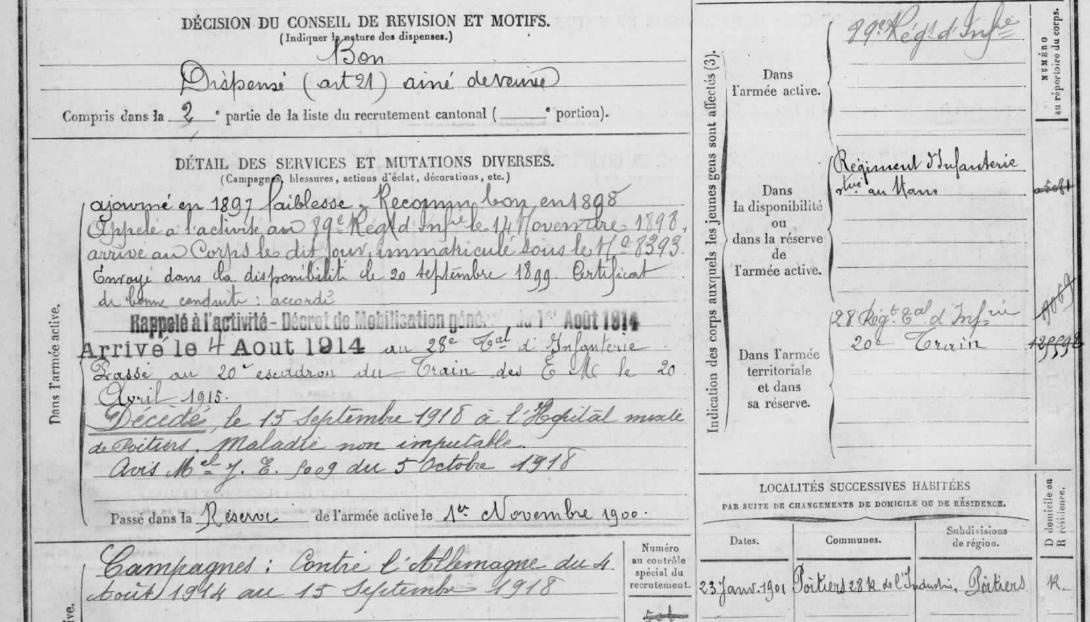 DÉCISION DU CONSEIL DE REVISION ET MOTIFS.
(Indiquer la nature des dispenses.)
Bon
Dispensé (art 21) ainé de veuve
Compris dans la 2e partie de la liste du recrutement cantonal (       e portion).
DÉTAIL DES SERVICES ET MUTATIONS DIVERSES.
(Campagnes, blessures, actions d'éclat, décorations, etc.)
Dans l'armée active.
ajourné en 1897 faiblesse - Reconnu bon en 1898
Appelé à l'activité au 89e Régt d'Infie le 14 Novembre 1898,
arrivé au Corps le dit jour, immatriculé sous le No 8393.
Envoyé dans la disponibilité le 20 septembre 1899. Certificat
de bonne conduite : accordé
Rappelé à l'activité - Décret de Mobilisation géné. du 1er Août 1914
Arrivé le 4 Aout 1914 au 28e Tal d'Infanterie
Passé au 20e escadron du Train des E M le 20
Avril 1915.
Décédé, le 15 Septembre 1918 à l'Hopital mixte
de Poitiers, Maladie non imputable.
Avis Mel J. E. 5009 du 5 Octobre 1918
Passé dans la Réserve de l'armée active le 1er Novembre 1900.
Campagnes : Contre l'Allemagne du 4
Août 1914 au 15 Septembre 1918
Numéro
au contrôle
spécial du
recrutement.
Indication des corps auxquels les jeunes gens sont affectés (3).
NUMÉRO
au répertoire du corps.
Dans
l'armée active.
89e Régt d'Infie
Dans
la disponibilité
ou
dans la réserve
de
l'armée active.
Régiment d'Infanterie
stné au Mans
Dans l'armée
territoriale
et dans
sa réserve.
28 Régt Tal d'Infrie
20e Train
LOCALITÉS SUCCESSIVES HABITÉES
PAR SUITE DE CHANGEMENTS DE DOMICILE OU DE RÉSIDENCE.
D domicile ou
R résidence.
Dates.
Communes.
Subdivisions
de région.
23 Janv. 1901 Poitiers 28 R. de l'Industrie, Poitiers R.